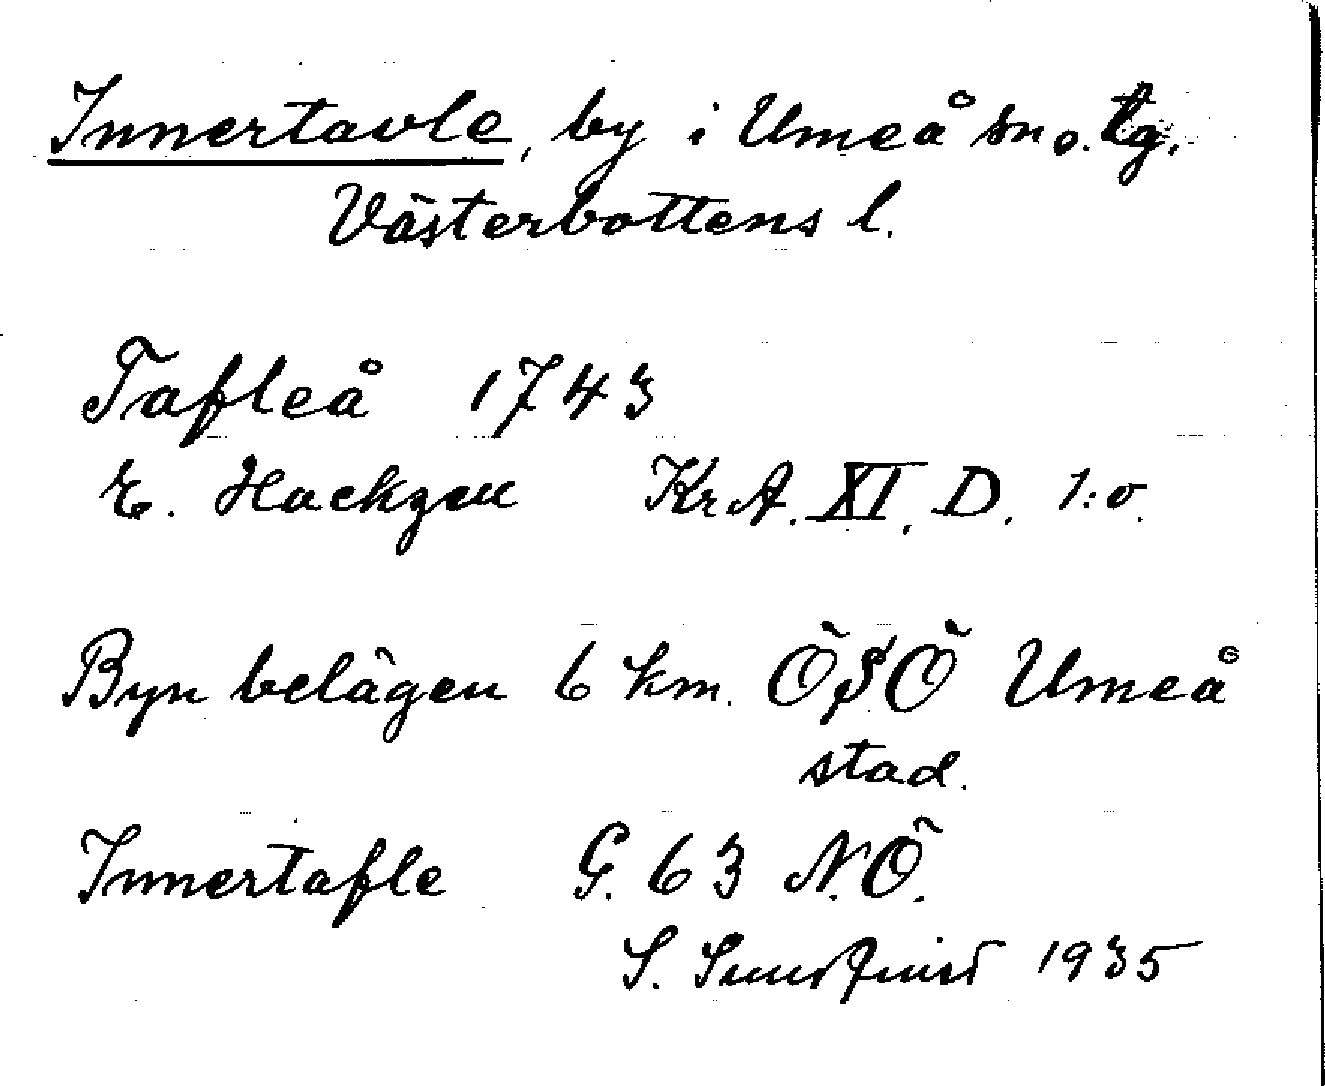 Innertavle, by i Umeå sn o. tg.
Västerbottens l.
Tafleå 1743
E. Hackzell KrA. XI. D. 1:o.
Byn belägen 6 km. ÖSÖ Umeå
stad.
Innertafle G. 63 N.Ö.
S. Sundqvist 1935